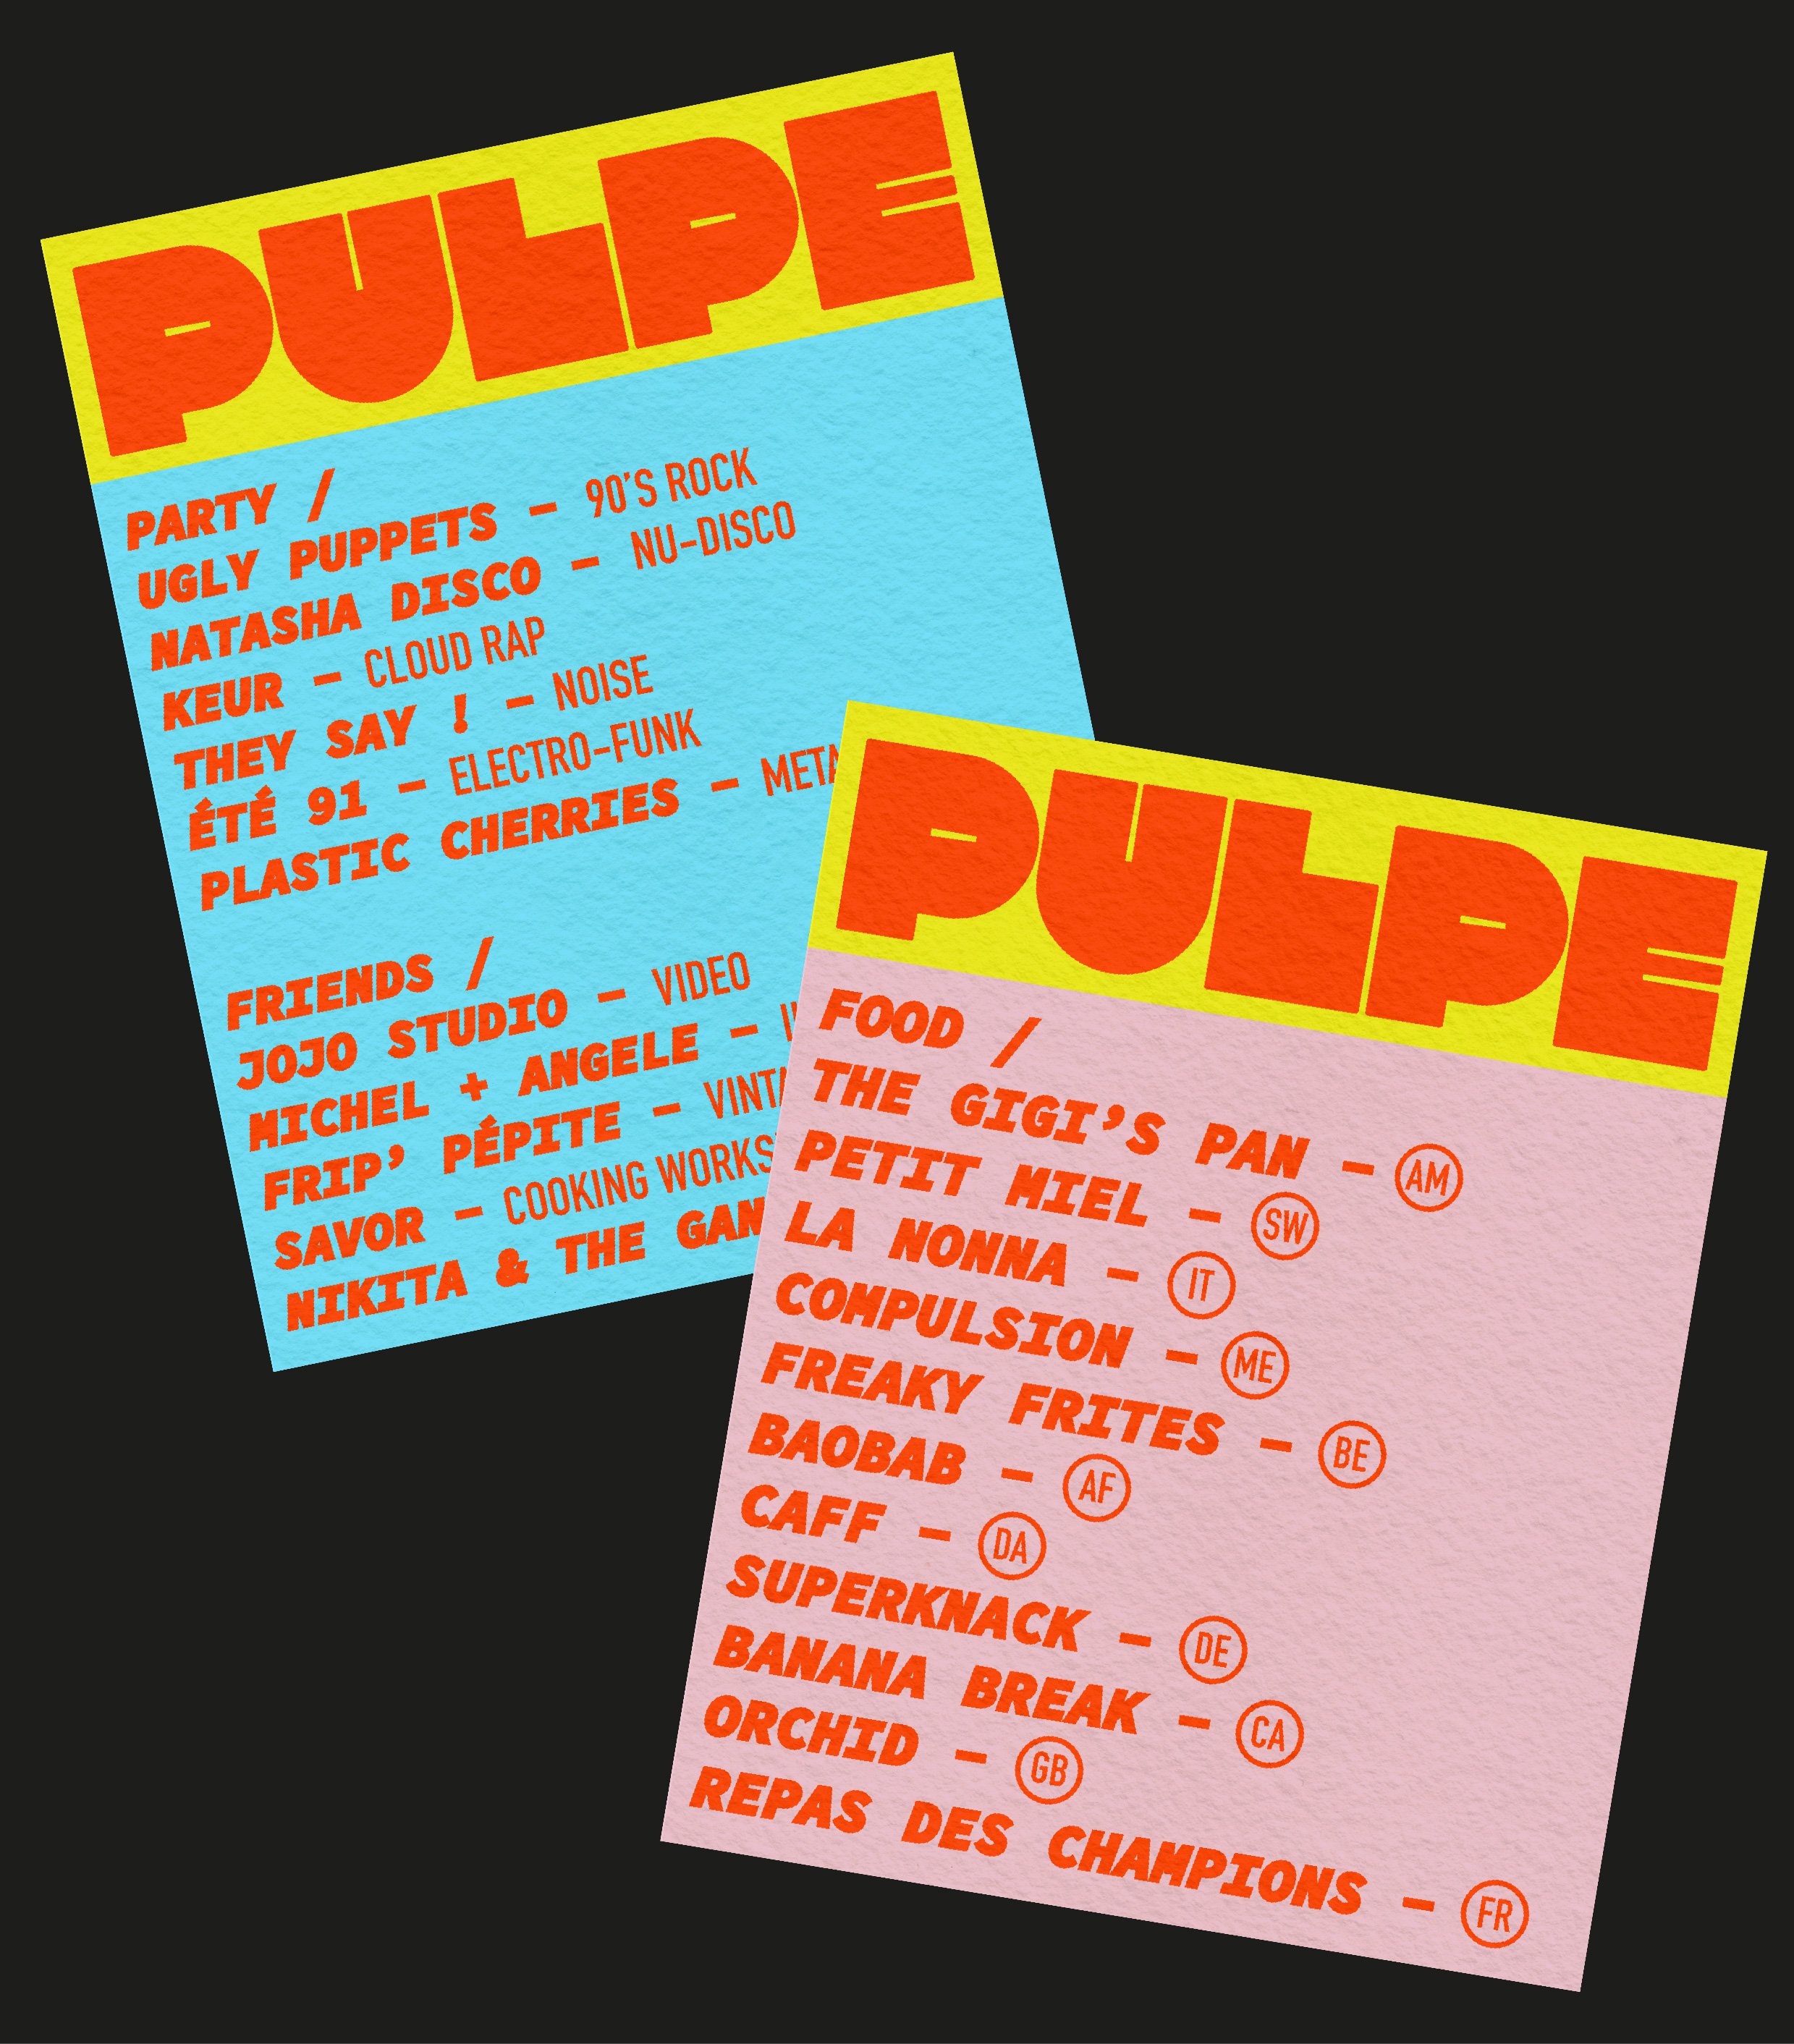 PULPE
PARTY /
UGLY PUPPETS – 90'S ROCK
NATASHA DISCO – NU-DISCO
KEUR – CLOUD RAP
THEY SAY ! – NOISE
ÉTÉ 91 – ELECTRO-FUNK
PLASTIC CHERRIES –
FRIENDS /
JOJO STUDIO – VIDEO
MICHEL + ANGELE –
FRIP' PÉPITE –
SAVOR – COOKING
NIKITA & THE
PULPE
FOOD /
THE GIGI'S PAN – AM
PETIT MIEL – SW
LA NONNA – IT
COMPULSION – ME
FREAKY FRITES – BE
BAOBAB – AF
CAFF – DA
SUPERKNACK – DE
BANANA BREAK – CA
ORCHID – GB
REPAS DES CHAMPIONS – FR